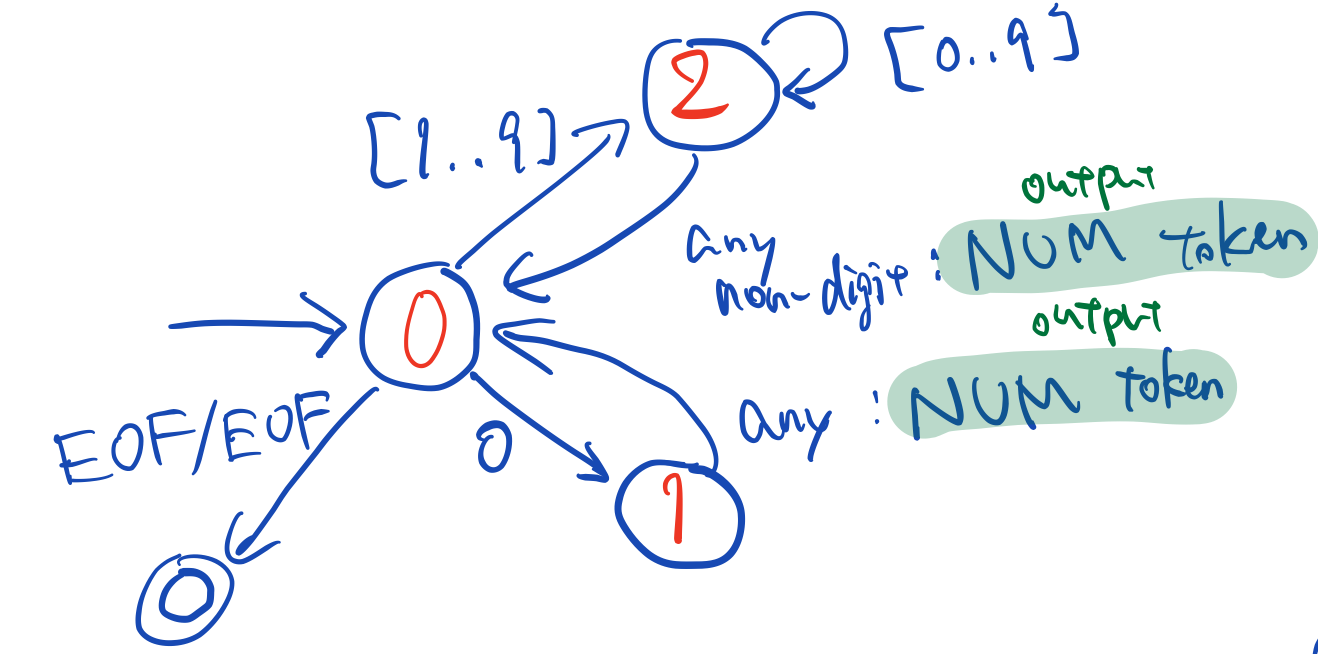 2
[0..9]
[1..9]
output
any
non-digit : NUM token
output
0
any : NUM token
EOF/EOF
0
1